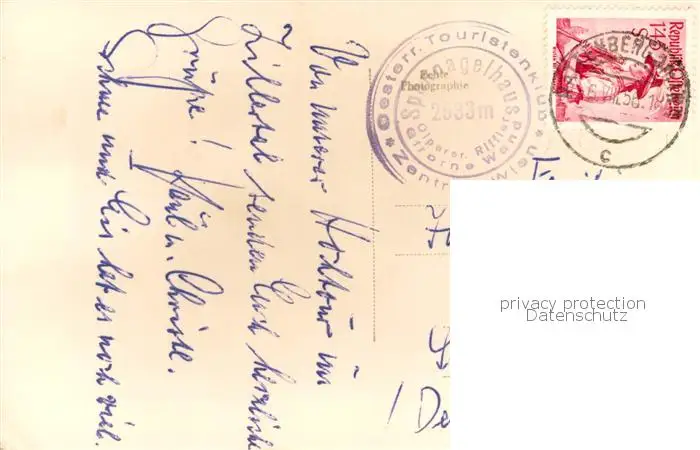 Von unserer Hochtour im
Zillertal senden Euch herzliche
Grüße! Karl u. Christl.
Schnee und Eis hat es noch viel.
Oesterr. Touristenklub
Zentrale Wien
Spannagelhaus
2533m
Olperer, Riffler
Gfrorne Wand
Echte
Photographie
Republik Österreich
privacy protection
Datenschutz